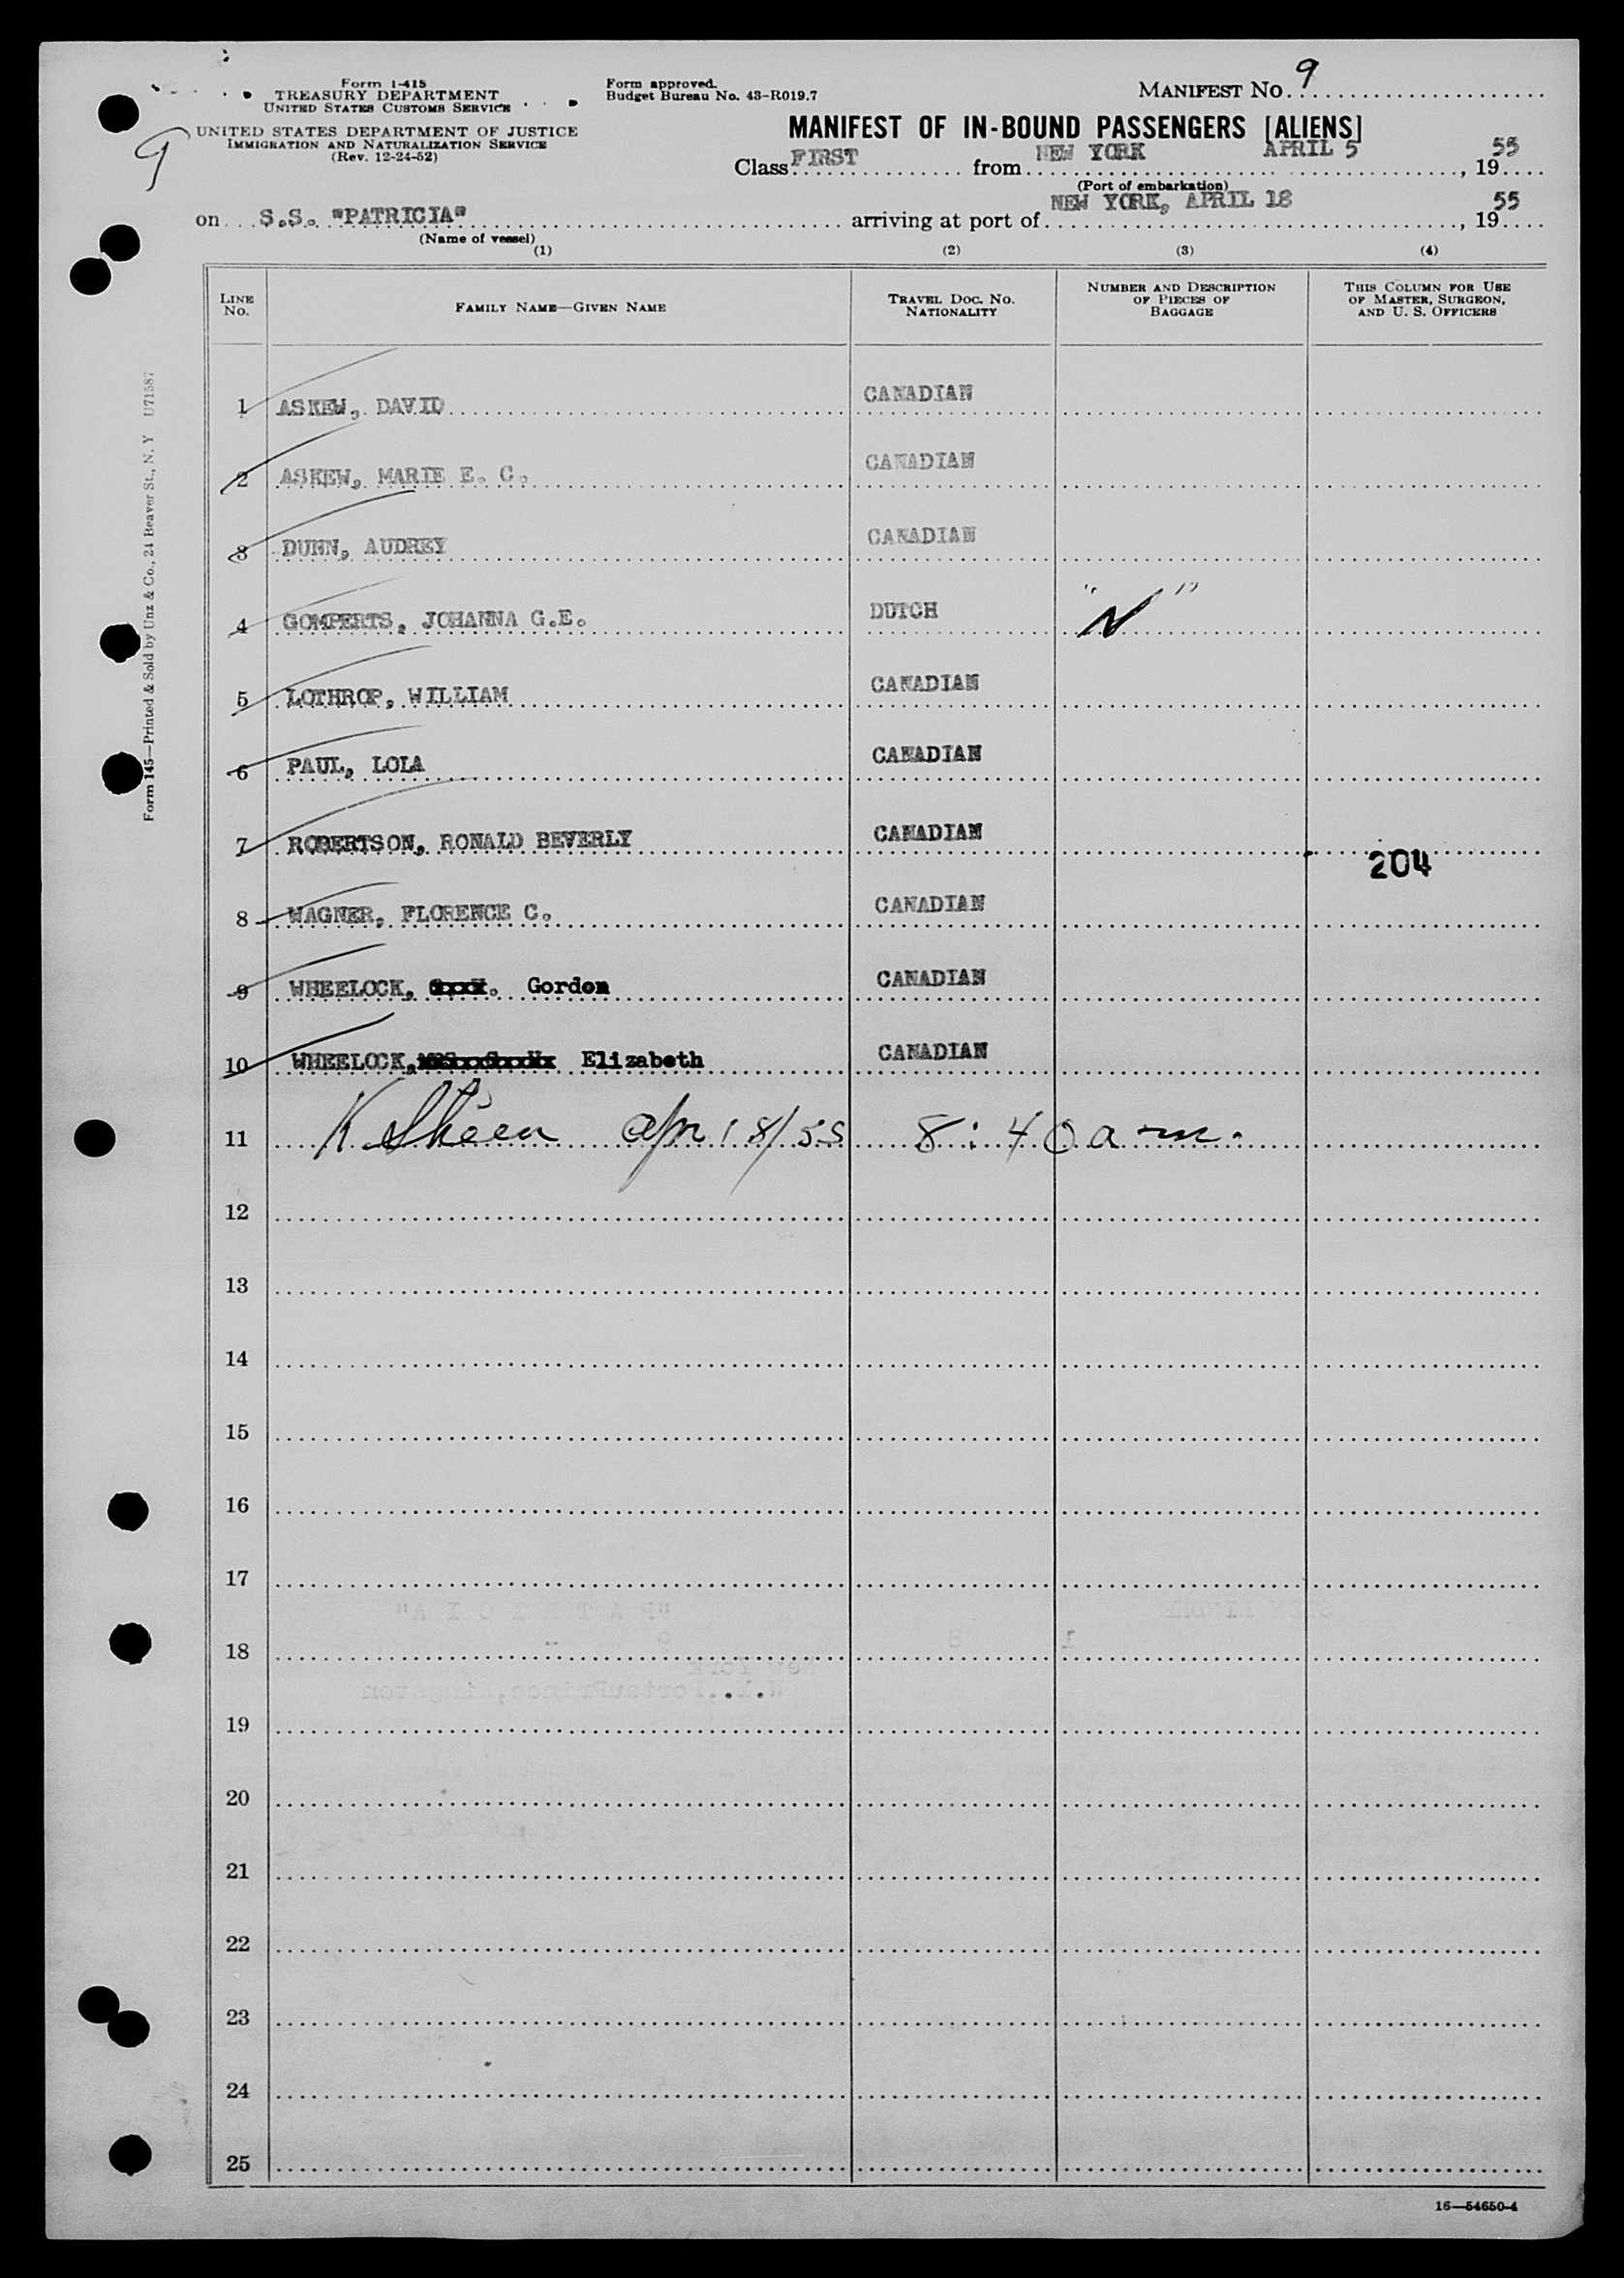 Form I-415
TREASURY DEPARTMENT
UNITED STATES CUSTOMS SERVICE
UNITED STATES DEPARTMENT OF JUSTICE
IMMIGRATION AND NATURALIZATION SERVICE
(Rev. 12-24-52)
9
Form approved.
Budget Bureau No. 43-R019.7
MANIFEST NO. 9
MANIFEST OF IN-BOUND PASSENGERS [ALIENS]
Class FIRST from NEW YORK APRIL 5, 1955
(Port of embarkation)
on S.S. "PATRICIA" arriving at port of NEW YORK, APRIL 18, 1955
(Name of vessel)
(1) (2) (3) (4)
LINE NO. FAMILY NAME—GIVEN NAME TRAVEL DOC. NO. NATIONALITY NUMBER AND DESCRIPTION OF PIECES OF BAGGAGE THIS COLUMN FOR USE OF MASTER, SURGEON, AND U. S. OFFICERS
1 ASKEW, DAVID CANADIAN
2 ASKEW, MARIE E. C. CANADIAN
3 DUNN, AUDREY CANADIAN
4 GOMPERTS, JOHANNA G.E. DUTCH "N"
5 LOTHROP, WILLIAM CANADIAN
6 PAUL, LOLA CANADIAN
7 ROBERTSON, RONALD BEVERLY CANADIAN
204
8 WAGNER, FLORENCE C. CANADIAN
9 WHEELOCK, Gordon CANADIAN
10 WHEELOCK, Elizabeth CANADIAN
11 K Sheen Apr 18/55 8:40 am.
12
13
14
15
16
17
18
19
20
21
22
23
24
25
16—54650-4
Form 145—Printed & Sold by Unz & Co., 24 Beaver St., N. Y U71587